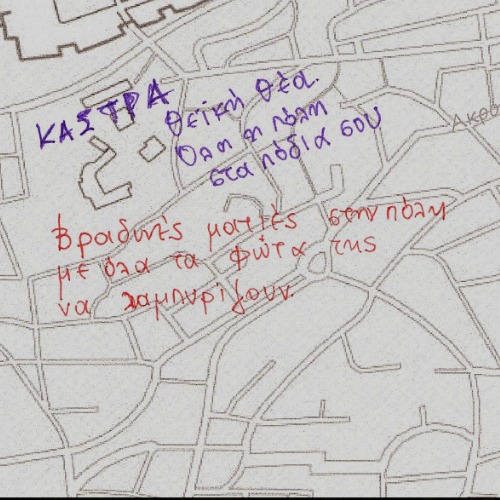 ΚΑΣΤΡΑ
θεϊκή θέα.
Όλη η πόλη
στα πόδια σου
Βραδινές ματιές στην πόλη
με όλα τα φώτα της
να λαμπυρίζουν.